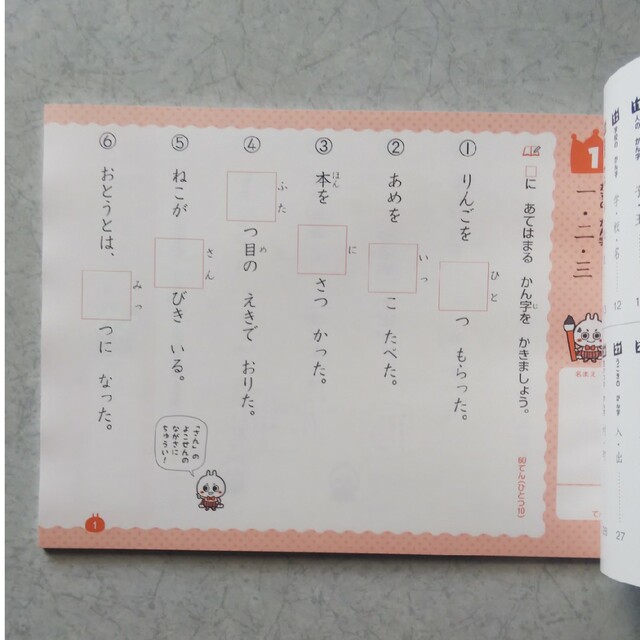 1
一・二・三
なまえ
□に あてはまる かん字を かきましょう。
じ
60てん(ひとつ10)
① りんごを □つ もらった。
ひと
② あめを □こ たべた。
いっ
③ 本を □さつ かった。
ほん
に
④ □つ目の えきで おりた。
ふた
め
⑤ ねこが □びき いる。
さん
「さん」の
よこせんの
ながさに
ちゅうい!
⑥ おとうとは、□つに なった。
みっ
1
12
人・出
27